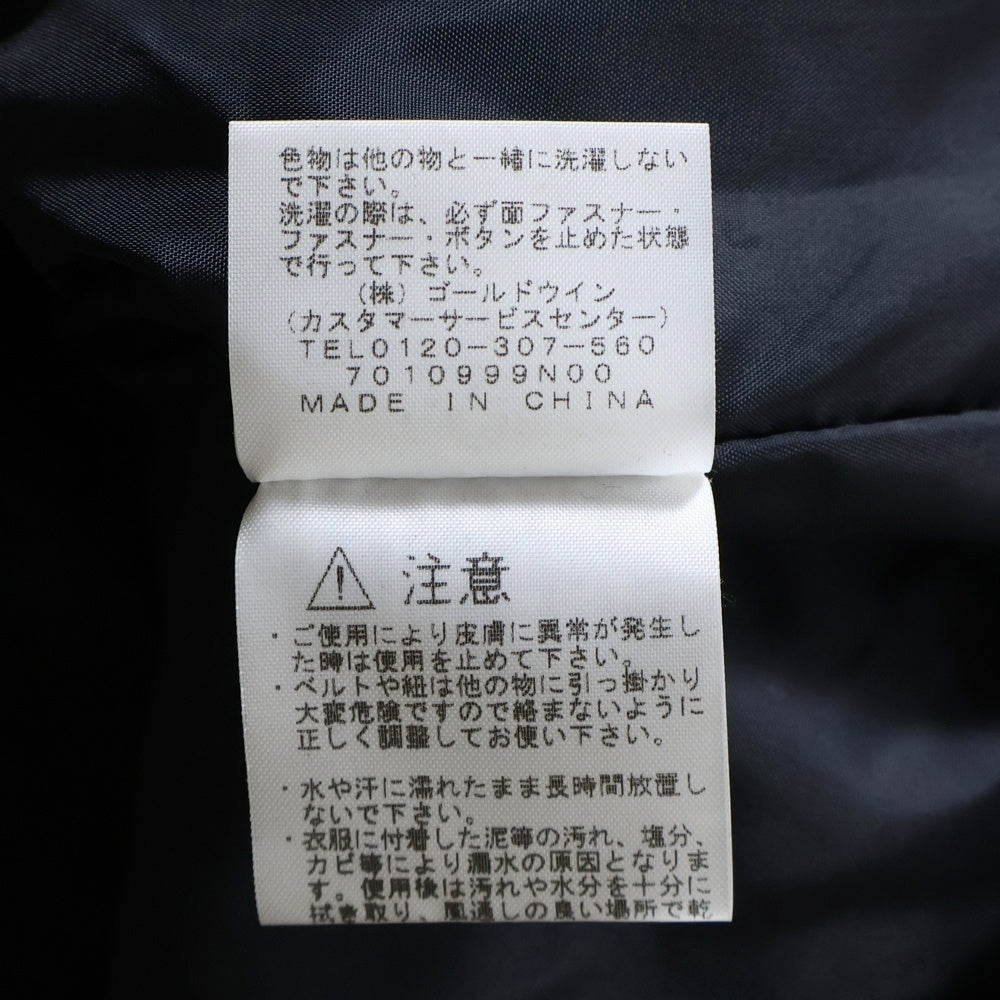 色物は他の物と一緒に洗濯しない
で下さい。
洗濯の際は、必ず面ファスナー・
ファスナー・ボタンを止めた状態
で行って下さい。
(株) ゴールドウイン
(カスタマーサービスセンター)
TEL0120-307-560
7010999N00
MADE IN CHINA
注意
・ご使用により皮膚に異常が発生し
た時は使用を止めて下さい。
・ベルトや紐は他の物に引っ掛かり
大変危険ですので絡まないように
正しく調整してお使い下さい。
・水や汗に濡れたまま長時間放置し
ないで下さい。
・衣服に付着した泥等の汚れ、塩分、
カビ等により漏水の原因となりま
す。使用後は汚れや水分を十分に
拭き取り、風通しの良い場所で乾